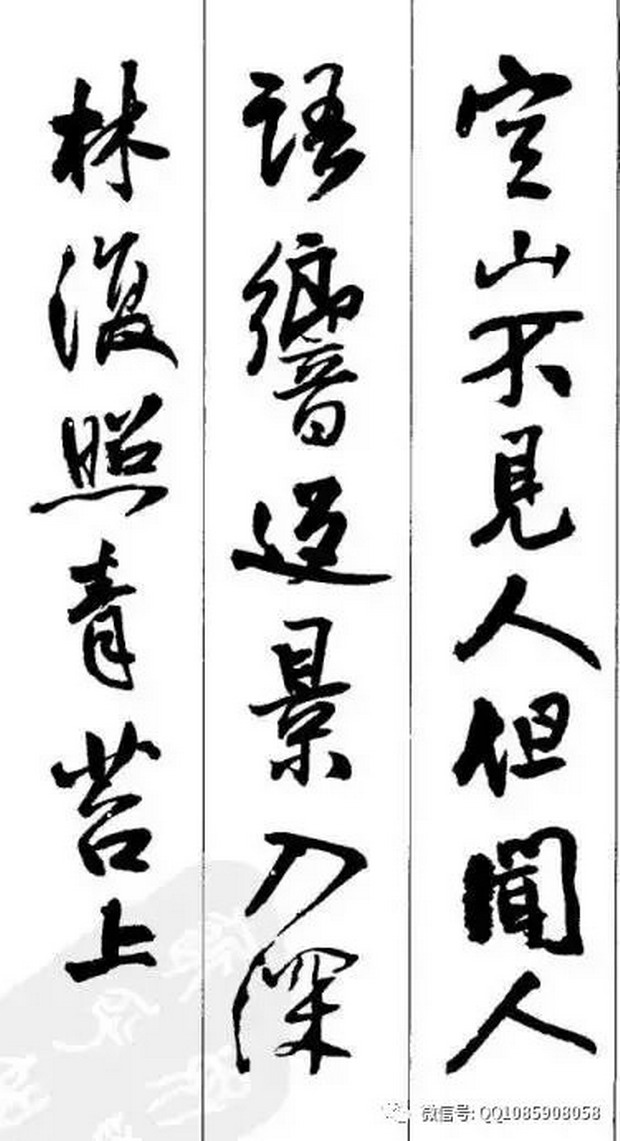 空山不見人但聞人
語響返景入深
林復照青苔上
微信号: QQ1085908058